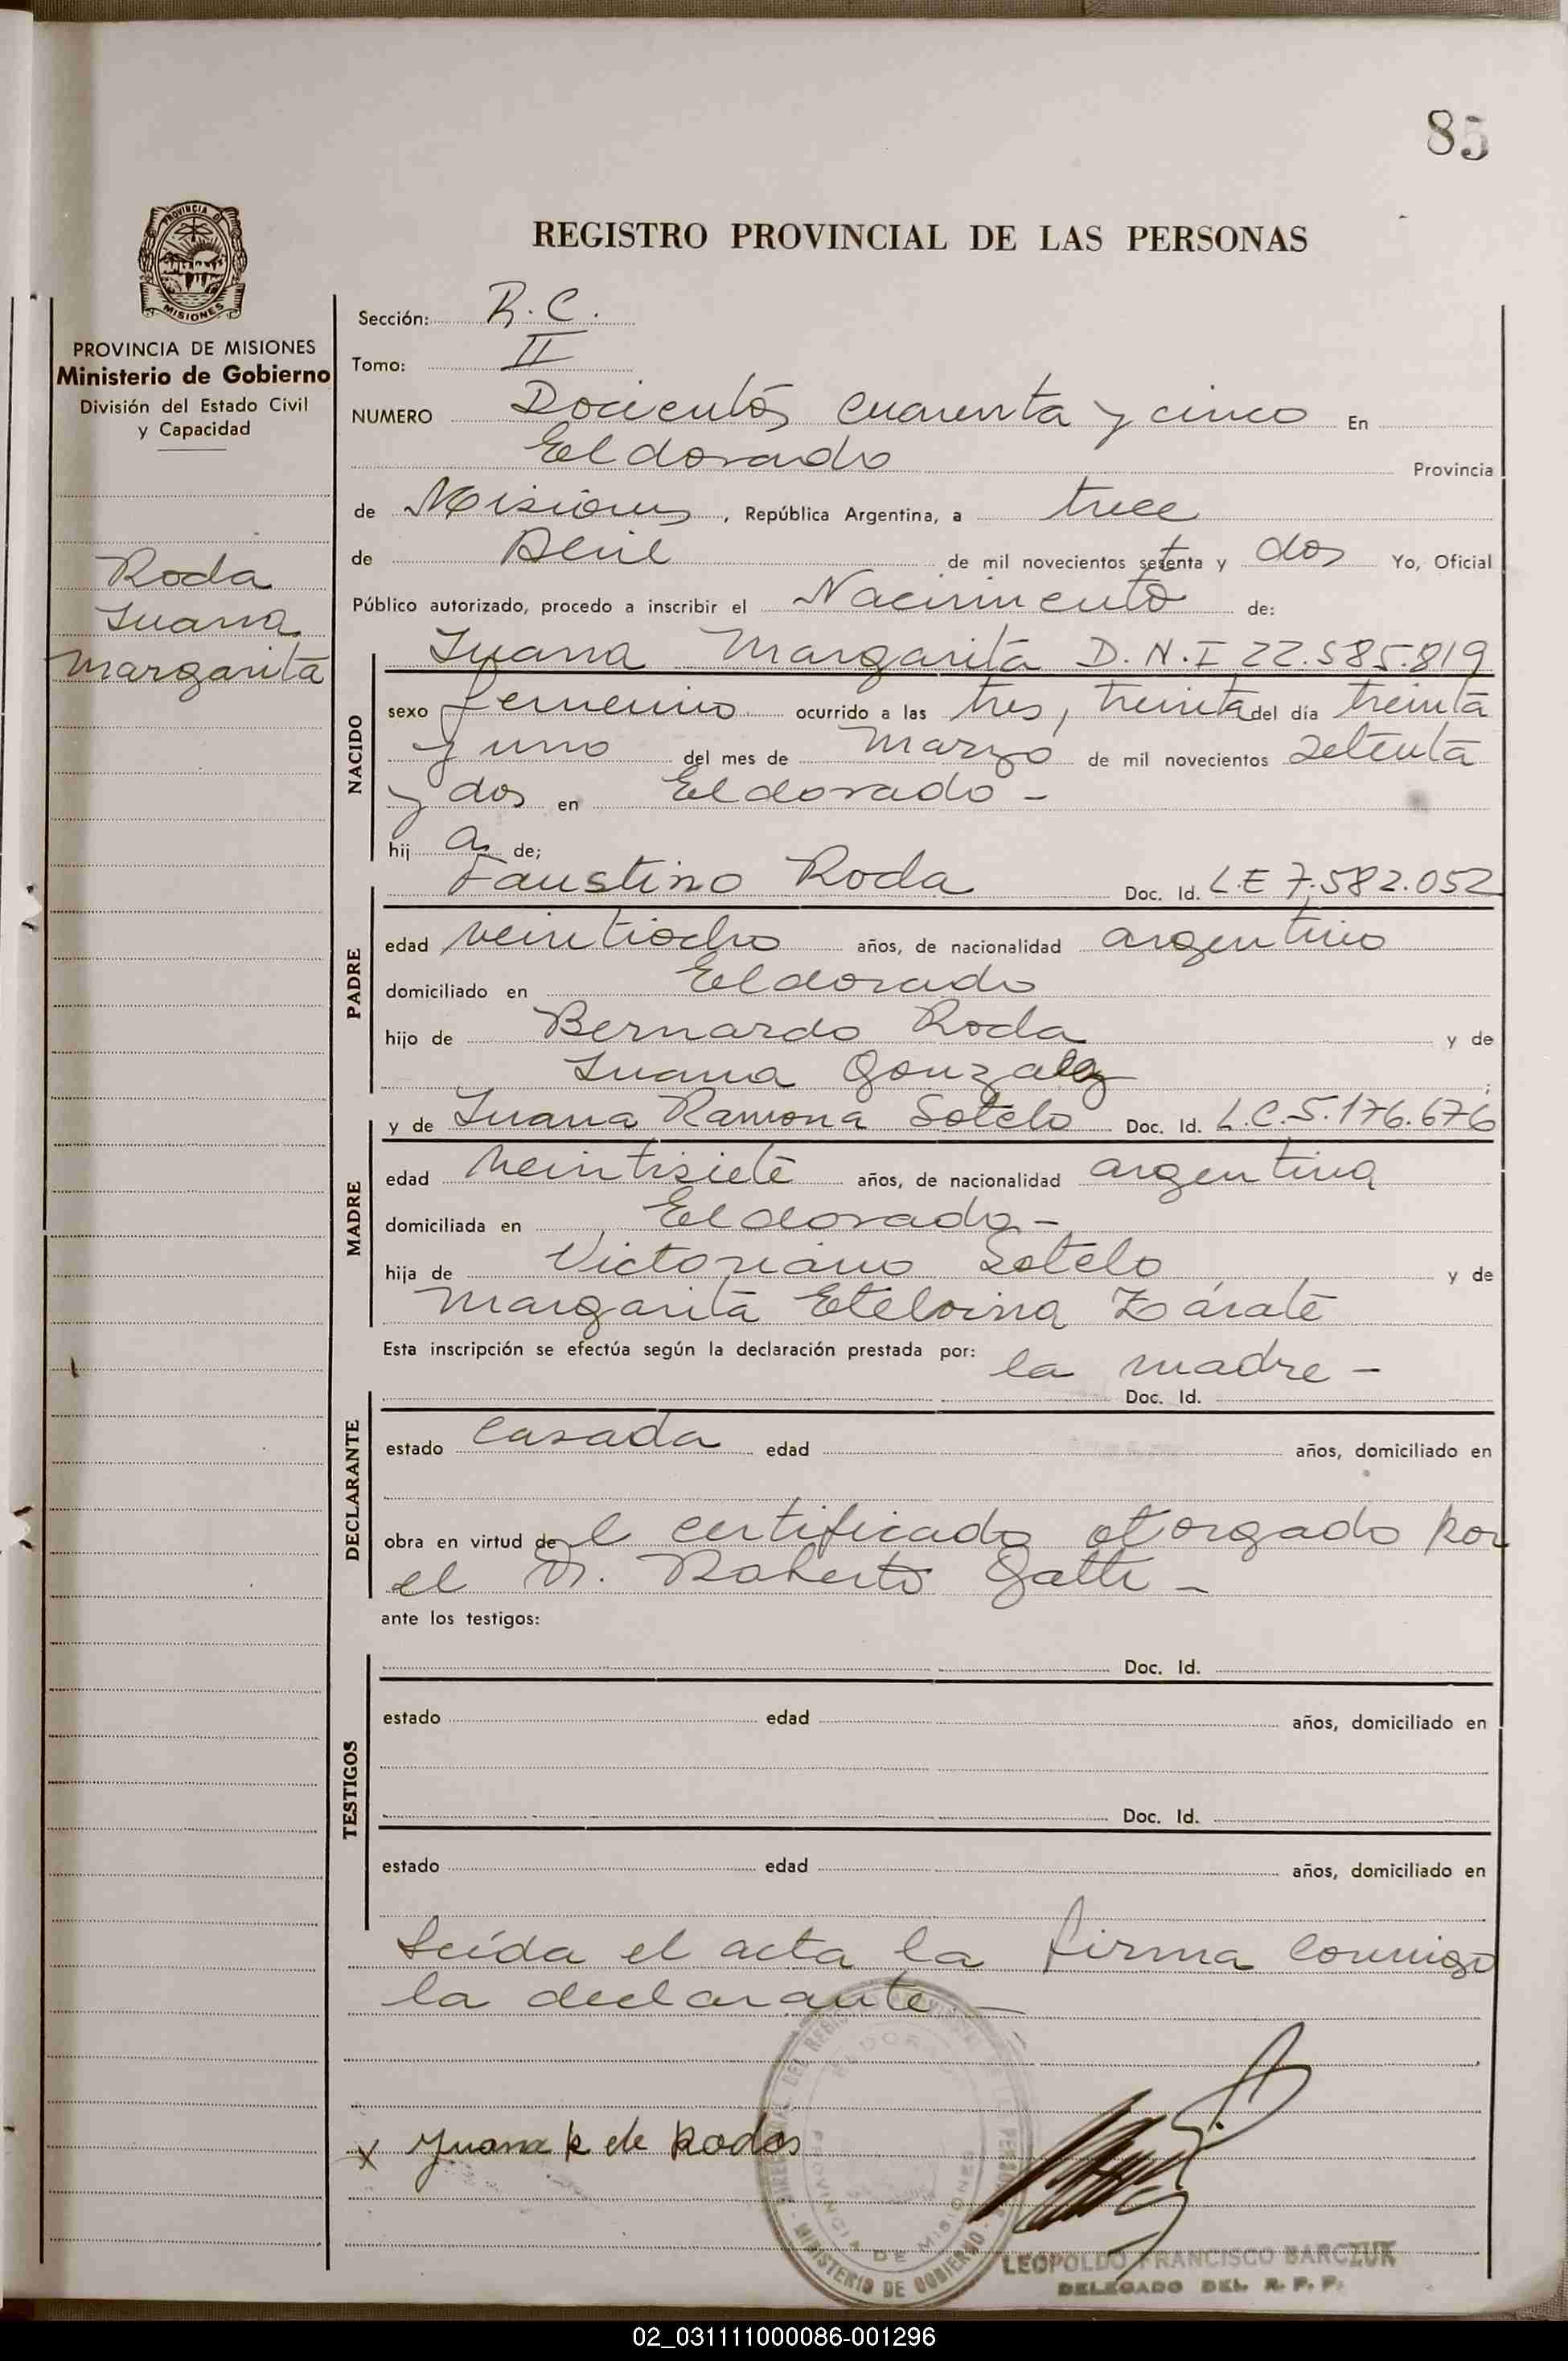 85
REGISTRO PROVINCIAL DE LAS PERSONAS
PROVINCIA DE MISIONES
Ministerio de Gobierno
División del Estado Civil
y Capacidad
Roda
Juana
Margarita
Sección: R. C.
Tomo: II
NUMERO Docientos cuarenta y cinco En
Eldorado Provincia
de Misiones, República Argentina, a trece
de Abril de mil novecientos setenta y dos Yo, Oficial
Público autorizado, procedo a inscribir el Nacimiento de:
NACIDO
Juana Margarita D.N.I 22.585.819
sexo femenino ocurrido a las tres, treinta del día treinta
y uno del mes de marzo de mil novecientos setenta
y dos en Eldorado -
hij a de;
PADRE
Faustino Roda Doc. Id. L.E 7.582.052
edad veintiocho años, de nacionalidad argentino
domiciliado en Eldorado
hijo de Bernardo Roda y de
Juana Gonzalez ;
MADRE
y de Juana Ramona Sotelo Doc. Id. L.C. 5.176.676
edad veintisiete años, de nacionalidad argentina
domiciliada en Eldorado -
hija de Victoriano Sotelo y de
Margarita Etelvina Zárate
Esta inscripción se efectúa según la declaración prestada por: la madre -
DECLARANTE
Doc. Id.
estado casada edad años, domiciliado en
obra en virtud de l certificado otorgado por
el Dr. Roberto Gatti -
ante los testigos:
TESTIGOS
Doc. Id.
estado edad años, domiciliado en
Doc. Id.
estado edad años, domiciliado en
Leída el acta la firma conmigo
la declarante. -
x Juana R de Rodas
PROVINCIA DE MISIONES
MINISTERIO DE GOBIERNO
LEOPOLDO FRANCISCO BARCZUK
DELEGADO DEL R. P. P.
02_031111000086-001296